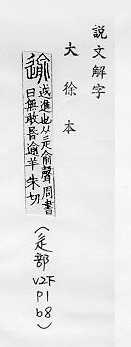 說文解字
大徐本
逾
𨒋進也从辵俞聲周書
曰無敢昏逾羊朱切
(辵部
V2下
P1
b8)